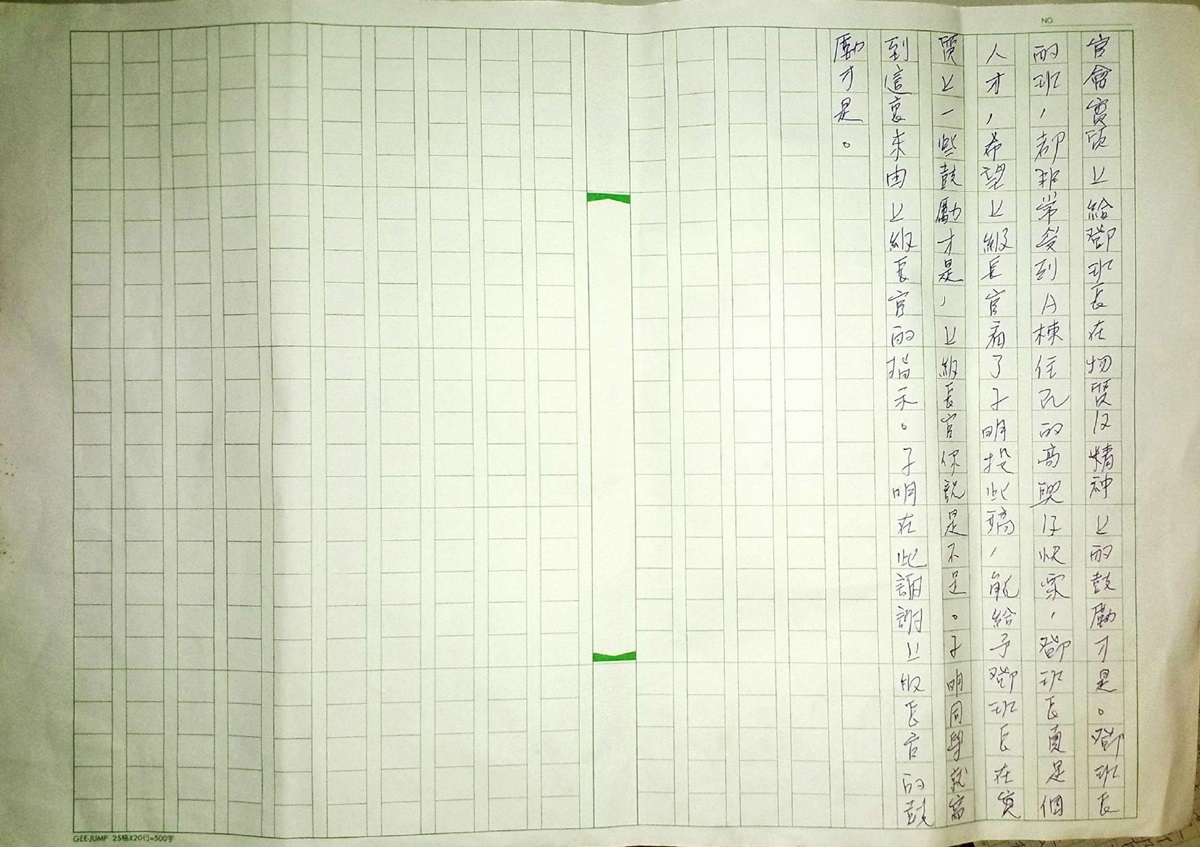 NO.
官會實質上給鄧班長在物質及精神上的鼓勵才是。鄧班長
的班，都非常受到A棟住民的高興及快樂，鄧班長真是個
人才，希望上級長官看了子明投此稿，能給予鄧班長在實
質上一些鼓勵才是，上級長官你說是不是。子明同學就寫
到這裏來由上級長官的指示。子明在此謝謝上級長官的鼓
勵才是。
GEE-JUMP 25格X20行=500字